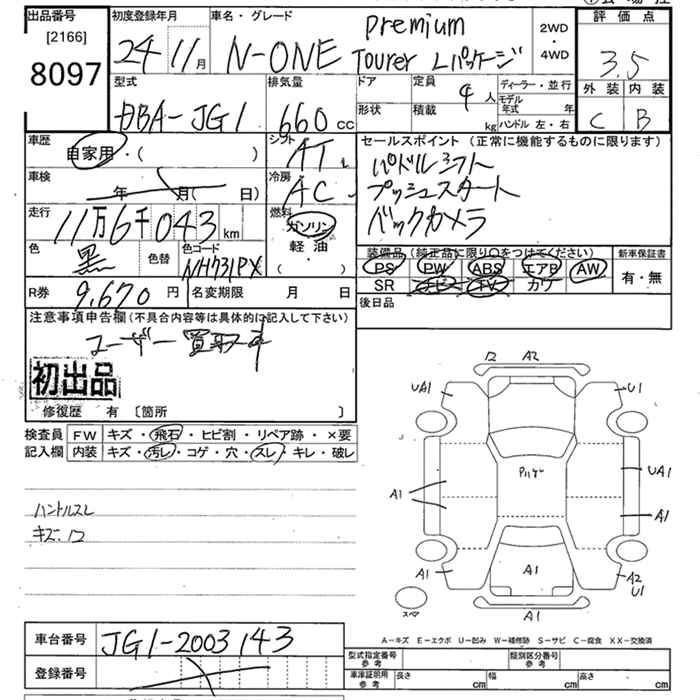 出品番号
[2166]
8097
初度登録年月
24 11月
車名・グレード
N-ONE
Premium
Tourer Lパッケージ
2WD
・
4WD
評価点
3.5
外装 内装
C B
型式
DBA-JG1
排気量
660 cc
ドア
形状
定員
4人
積載
kg
ディーラー・並行
モデル年式 年
ハンドル 左・右
車歴
自家用・( )
シフト
AT
セールスポイント (正常に機能するものに限ります)
パドルシフト
プッシュスタート
バックカメラ
車検
年 月( 日)
冷房
AC
走行
11万6千043 km
燃料
ガソリン
軽油
( )
色
黒
色替
色コード
NH731PX
装備品 (純正品に限り○をつけてください)
PS PW ABS エアB AW
SR ナビ TV カワ
新車保証書
有・無
R券
9,670 円
名変期限 月 日
後日品
注意事項申告欄(不具合内容等は具体的に記入して下さい)
ユーザー買取車
初出品
修復歴 有 〔箇所 〕
検査員
記入欄
FW キズ・飛石・ヒビ割・リペア跡・×要
内装 キズ・汚レ・コゲ・穴・スレ・キレ・破レ
ハンドルスレ
キズ.ワ
ワ A2
UA1
U1
A1
UA1
A1
A1
A1
A2
U1
スペア
A1
A-キズ E-エクボ U-凹み W-補修跡 S-サビ C-腐食 XX-交換済
車台番号
JG1-2003143
登録番号
型式指定番号
参考
類別区分番号
参考
車庫証明用
参考
長さ cm 幅 cm 高さ cm